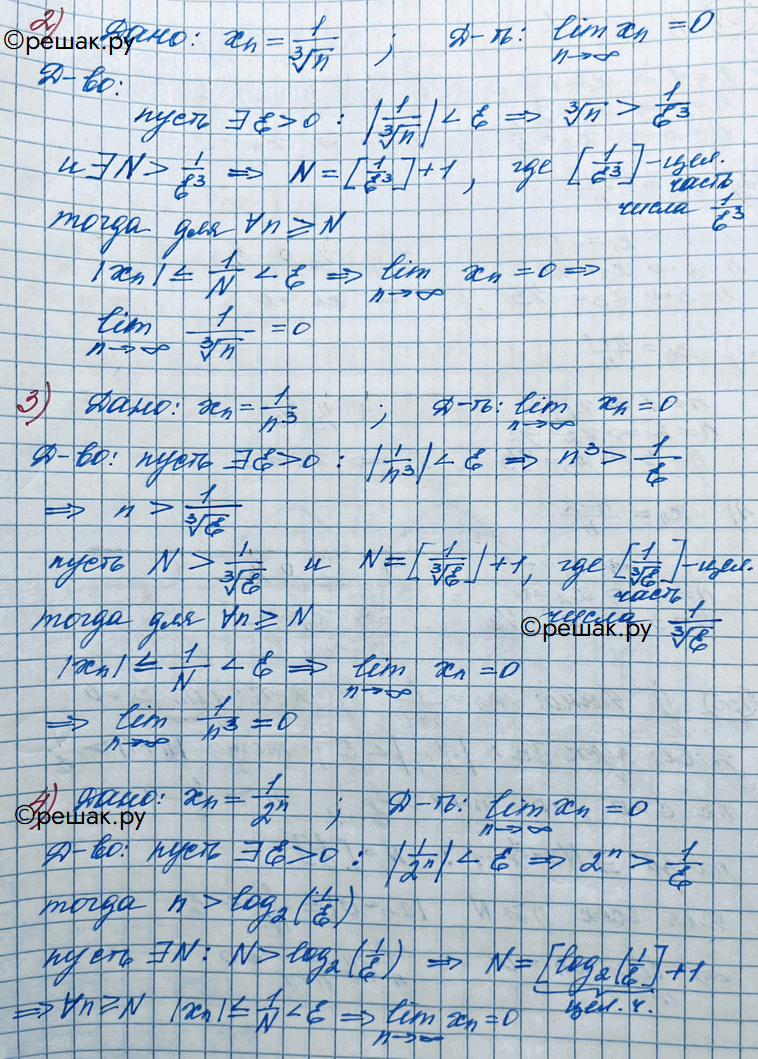 2) Дано: xₙ = 1/∛n ; Д-ть: lim xₙ = 0
n→∞
©решак.ру
Д-во:
пусть ∃ε>0 : |1/∛n| < ε ⇒ ∛n > 1/ε³
и ∃N > 1/ε³ ⇒ N = [1/ε³]+1, где [1/ε³] - цел.
часть
числа 1/ε³
тогда для ∀n ≥ N
|xₙ| ≤ 1/N < ε ⇒ lim xₙ = 0 ⇒
n→∞
lim 1/∛n = 0
n→∞
3) Дано: xₙ = 1/n³ ; Д-ть: lim xₙ = 0
n→∞
Д-во: пусть ∃ε>0 : |1/n³| < ε ⇒ n³ > 1/ε
⇒ n > 1/∛ε
пусть N > 1/∛ε и N = [1/∛ε]+1, где [1/∛ε] - цел.
часть
тогда для ∀n ≥ N числа 1/∛ε
©решак.ру
|xₙ| ≤ 1/N < ε ⇒ lim xₙ = 0
n→∞
⇒ lim 1/n³ = 0
n→∞
4) Дано: xₙ = 1/2ⁿ ; Д-ть: lim xₙ = 0
n→∞
©решак.ру
Д-во: пусть ∃ε>0 : |1/2ⁿ| < ε ⇒ 2ⁿ > 1/ε
тогда n > log₂(1/ε)
пусть ∃N: N > log₂(1/ε) ⇒ N = [log₂(1/ε]+1
цел. ч.
⇒ ∀n ≥ N |xₙ| ≤ 1/N < ε ⇒ lim xₙ = 0
n→∞